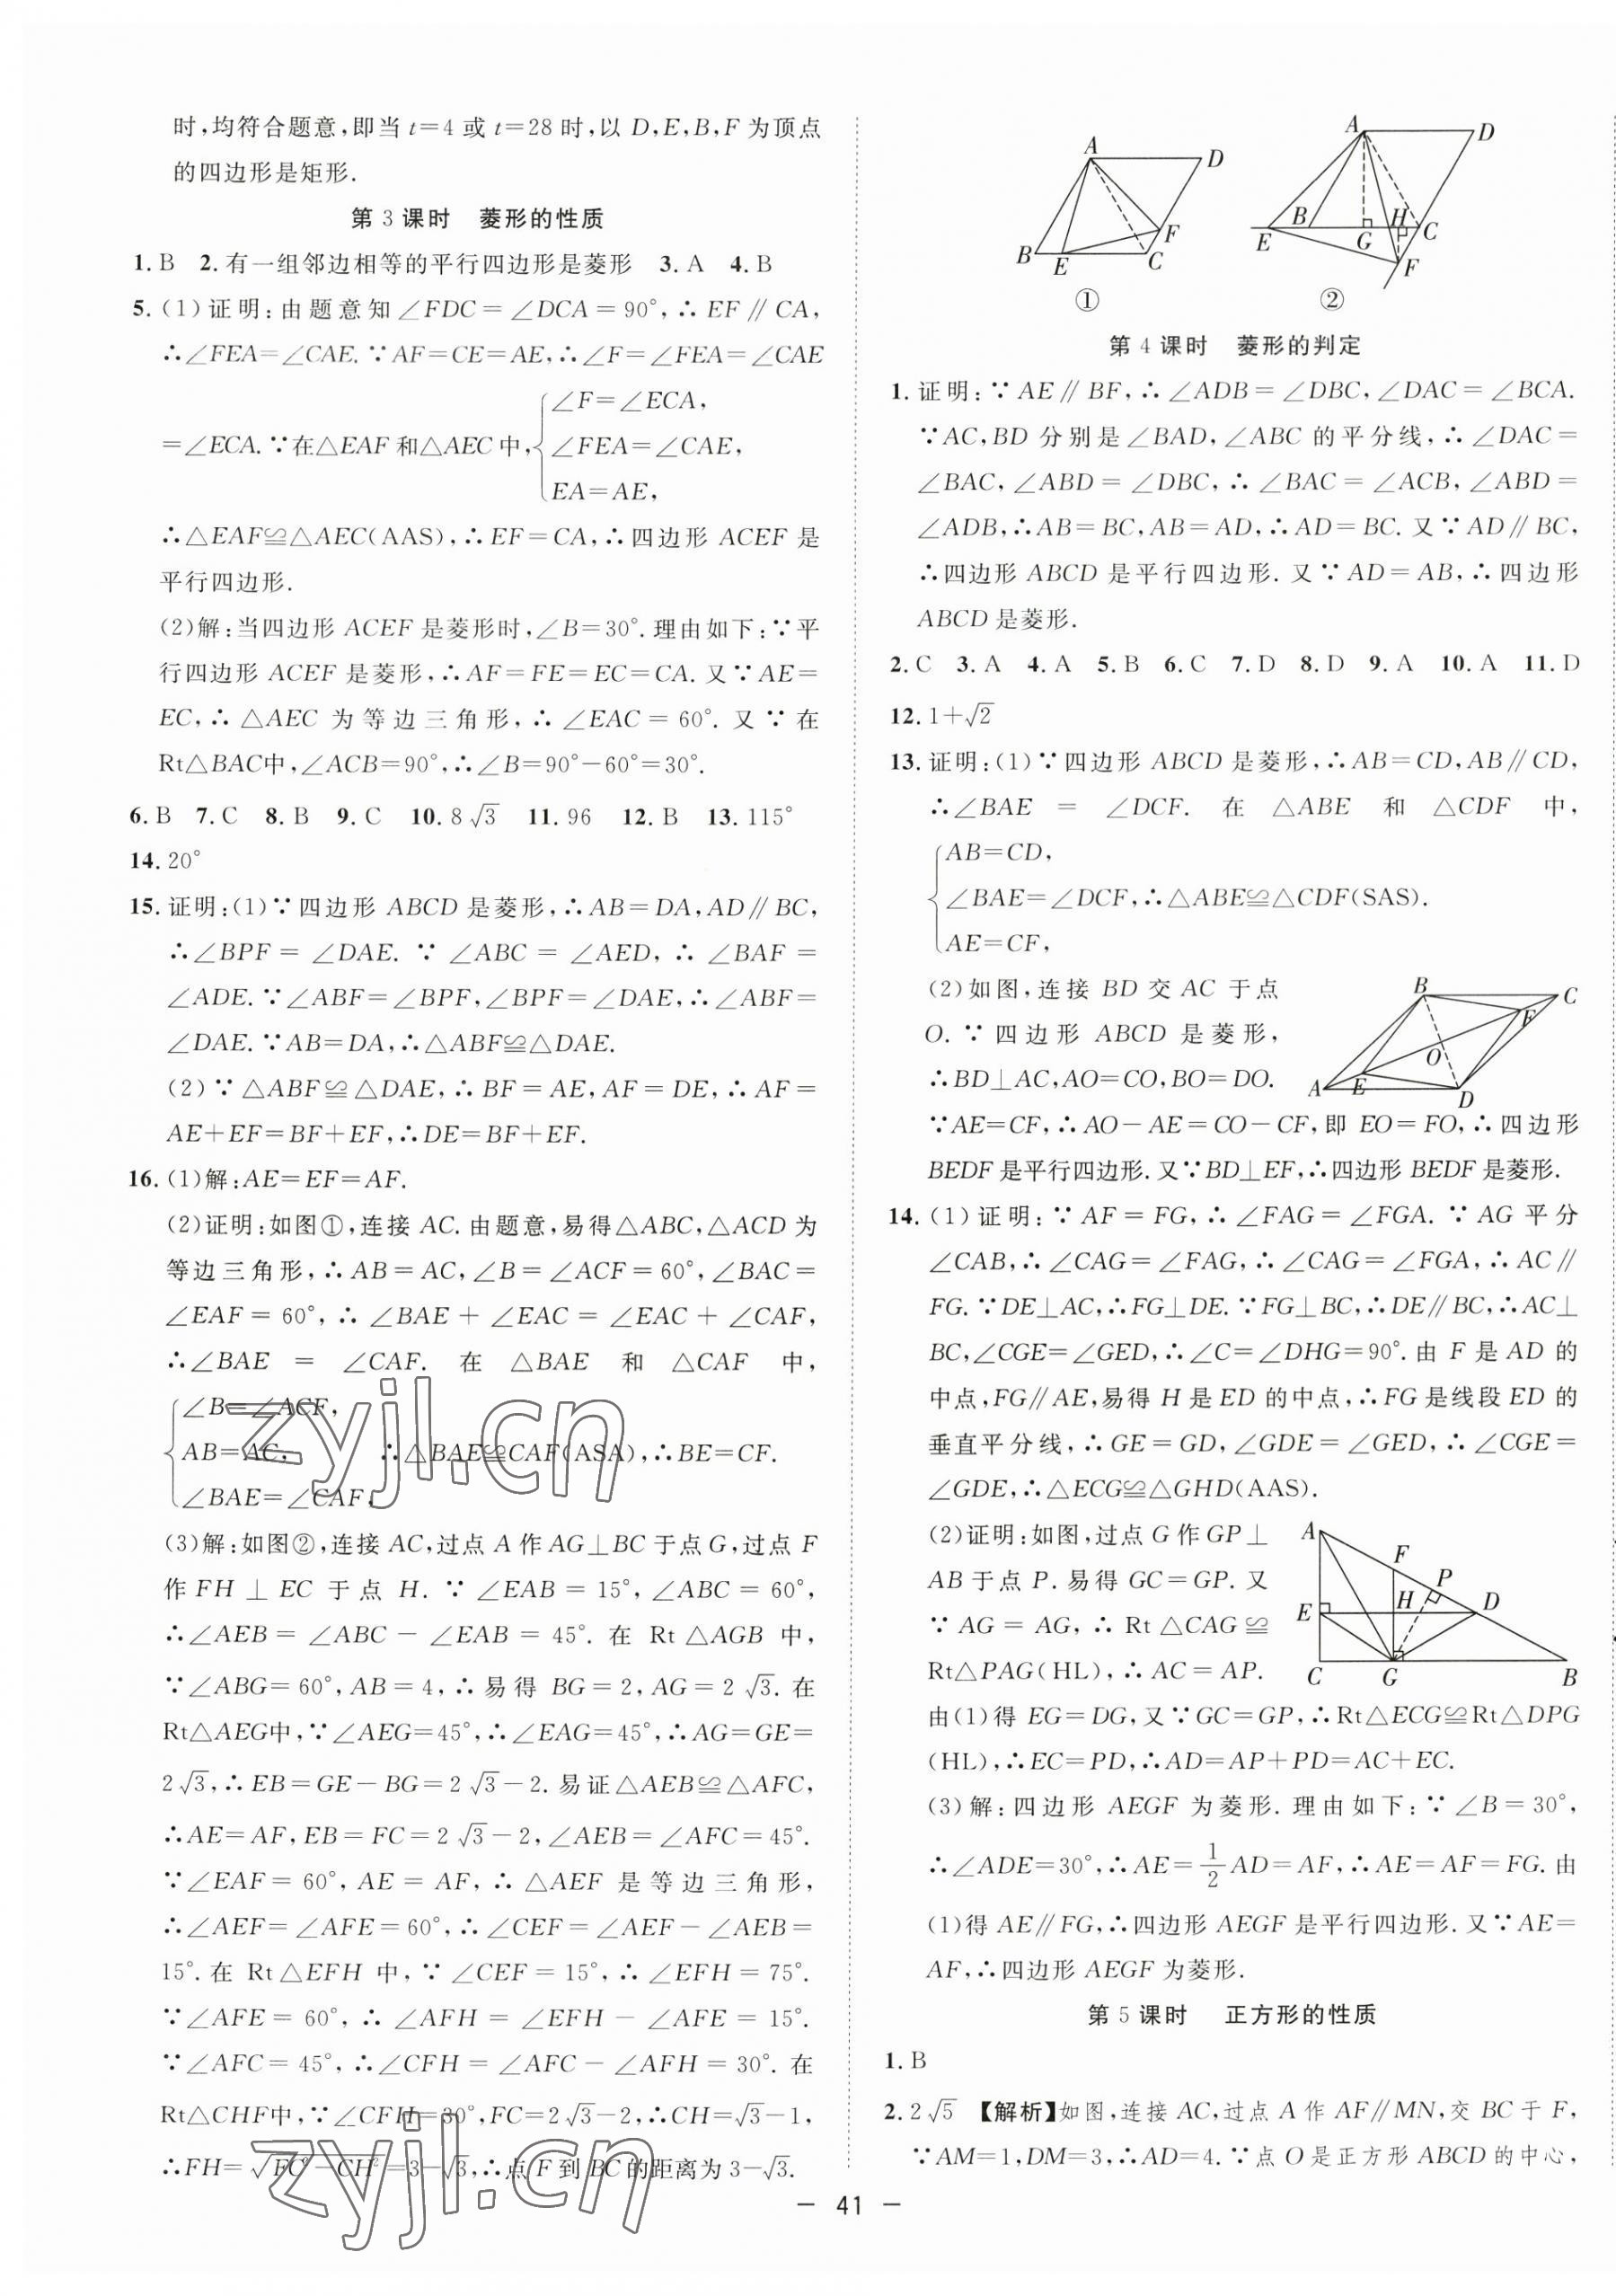 时,均符合题意,即当 t=4 或 t=28 时,以 D,E,B,F 为顶点
的四边形是矩形.
第 3 课时　菱形的性质
1. B　2. 有一组邻边相等的平行四边形是菱形　3. A　4. B
5. (1)证明:由题意知∠FDC=∠DCA=90°,∴EF∥CA,
∴∠FEA=∠CAE.∵AF=CE=AE,∴∠F=∠FEA=∠CAE
∠F=∠ECA,
=∠ECA.∵在△EAF 和△AEC 中,∠FEA=∠CAE,
EA=AE,
∴△EAF≌△AEC(AAS),∴EF=CA,∴四边形 ACEF 是
平行四边形.
(2)解:当四边形 ACEF 是菱形时,∠B=30°.理由如下:∵平
行四边形 ACEF 是菱形,∴AF=FE=EC=CA.又∵AE=
EC,∴△AEC 为等边三角形,∴∠EAC=60°.又∵在
Rt△BAC中,∠ACB=90°,∴∠B=90°-60°=30°.
6. B　7. C　8. B　9. C　10. 8√3　11. 96　12. B　13. 115°
14. 20°
15. 证明:(1)∵四边形 ABCD 是菱形,∴AB=DA,AD∥BC,
∴∠BPF=∠DAE.∵∠ABC=∠AED,∴∠BAF=
∠ADE.∵∠ABF=∠BPF,∠BPF=∠DAE,∴∠ABF=
∠DAE.∵AB=DA,∴△ABF≌△DAE.
(2)∵△ABF≌△DAE,∴BF=AE,AF=DE,∴AF=
AE+EF=BF+EF,∴DE=BF+EF.
16. (1)解:AE=EF=AF.
(2)证明:如图①,连接 AC.由题意,易得△ABC,△ACD 为
等边三角形,∴AB=AC,∠B=∠ACF=60°,∠BAC=
∠EAF=60°,∴∠BAE+∠EAC=∠EAC+∠CAF,
∴∠BAE=∠CAF.在△BAE 和△CAF 中,
∠B=∠ACF,
AB=AC,　∴△BAE≌CAF(ASA),∴BE=CF.
∠BAE=∠CAF,
(3)解:如图②,连接 AC,过点 A 作 AG⊥BC 于点 G,过点 F
作 FH⊥EC 于点 H.∵∠EAB=15°,∠ABC=60°,
∴∠AEB=∠ABC-∠EAB=45°.在 Rt△AGB 中,
∵∠ABG=60°,AB=4,∴易得 BG=2,AG=2√3.在
Rt△AEG中,∵∠AEG=45°,∴∠EAG=45°,∴AG=GE=
2√3,∴EB=GE-BG=2√3-2.易证△AEB≌△AFC,
∴AE=AF,EB=FC=2√3-2,∠AEB=∠AFC=45°.
∵∠EAF=60°,AE=AF,∴△AEF 是等边三角形,
∴∠AEF=∠AFE=60°,∴∠CEF=∠AEF-∠AEB=
15°.在 Rt△EFH 中,∵∠CEF=15°,∴∠EFH=75°.
∵∠AFE=60°,∴∠AFH=∠EFH-∠AFE=15°.
∵∠AFC=45°,∴∠CFH=∠AFC-∠AFH=30°.在
Rt△CHF中,∵∠CFH=30°,FC=2√3-2,∴CH=√3-1,
∴FH=√FC²-CH²=3-√3,∴点 F 到 BC 的距离为 3-√3.
A D B E C F ①
A D E B G H C F ②
第 4 课时　菱形的判定
1. 证明:∵AE∥BF,∴∠ADB=∠DBC,∠DAC=∠BCA.
∵AC,BD 分别是∠BAD,∠ABC 的平分线,∴∠DAC=
∠BAC,∠ABD=∠DBC,∴∠BAC=∠ACB,∠ABD=
∠ADB,∴AB=BC,AB=AD,∴AD=BC.又∵AD∥BC,
∴四边形 ABCD 是平行四边形.又∵AD=AB,∴四边形
ABCD 是菱形.
2. C　3. A　4. A　5. B　6. C　7. D　8. D　9. A　10. A　11. D
12. 1+√2
13. 证明:(1)∵四边形 ABCD 是菱形,∴AB=CD,AB∥CD,
∴∠BAE=∠DCF.在△ABE 和△CDF 中,
AB=CD,
∠BAE=∠DCF,∴△ABE≌△CDF(SAS).
AE=CF,
(2)如图,连接 BD 交 AC 于点
O.∵四边形 ABCD 是菱形,
∴BD⊥AC,AO=CO,BO=DO.
B C F O A E D
∵AE=CF,∴AO-AE=CO-CF,即 EO=FO,∴四边形
BEDF 是平行四边形.又∵BD⊥EF,∴四边形 BEDF 是菱形.
14. (1)证明:∵AF=FG,∴∠FAG=∠FGA.∵AG 平分
∠CAB,∴∠CAG=∠FAG,∴∠CAG=∠FGA,∴AC∥
FG.∵DE⊥AC,∴FG⊥DE.∵FG⊥BC,∴DE∥BC,∴AC⊥
BC,∠CGE=∠GED,∴∠C=∠DHG=90°.由 F 是 AD 的
中点,FG∥AE,易得 H 是 ED 的中点,∴FG 是线段 ED 的
垂直平分线,∴GE=GD,∠GDE=∠GED,∴∠CGE=
∠GDE,∴△ECG≌△GHD(AAS).
(2)证明:如图,过点 G 作 GP⊥
AB 于点 P.易得 GC=GP.又
∵AG=AG,∴Rt△CAG≌
Rt△PAG(HL),∴AC=AP.
A F P E H D C G B
由(1)得 EG=DG,又∵GC=GP,∴Rt△ECG≌Rt△DPG
(HL),∴EC=PD,∴AD=AP+PD=AC+EC.
(3)解:四边形 AEGF 为菱形.理由如下:∵∠B=30°,
∴∠ADE=30°,∴AE=1/2AD=AF,∴AE=AF=FG.由
(1)得 AE∥FG,∴四边形 AEGF 是平行四边形.又∵AE=
AF,∴四边形 AEGF 为菱形.
第 5 课时　正方形的性质
1. B
2. 2√5　【解析】如图,连接 AC,过点 A 作 AF∥MN,交 BC 于 F,
∵AM=1,DM=3,∴AD=4.∵点 O 是正方形 ABCD 的中心,
— 41 —
zyjl.cn
zyjl.cn